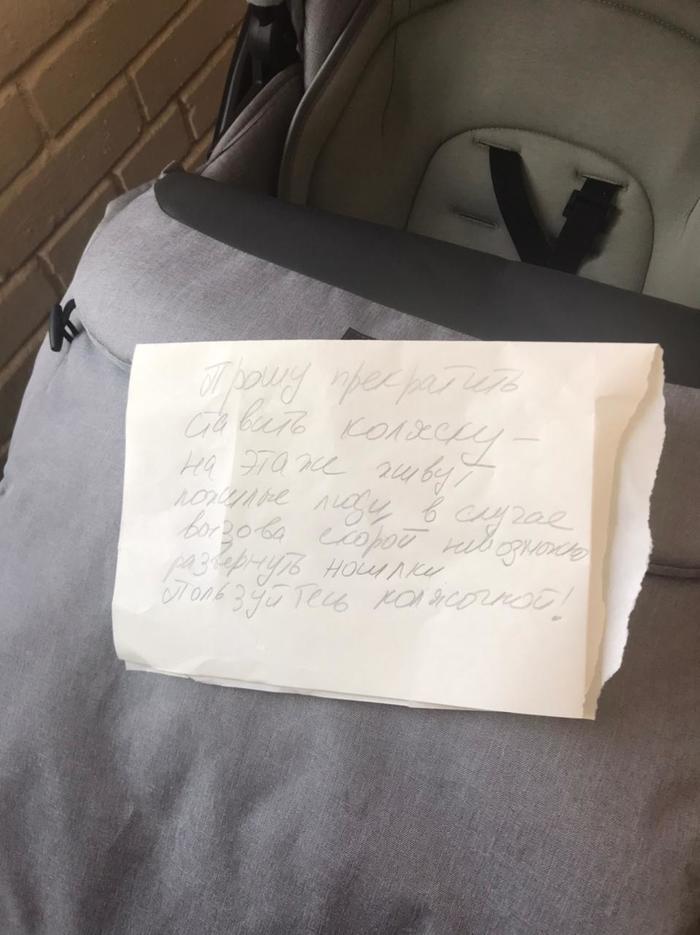 Прошу прекратить
ставить коляску -
на этаже живут
пожилые люди, в случае
вызова скорой невозможно
развернуть носилки
Пользуйтесь колясочной!